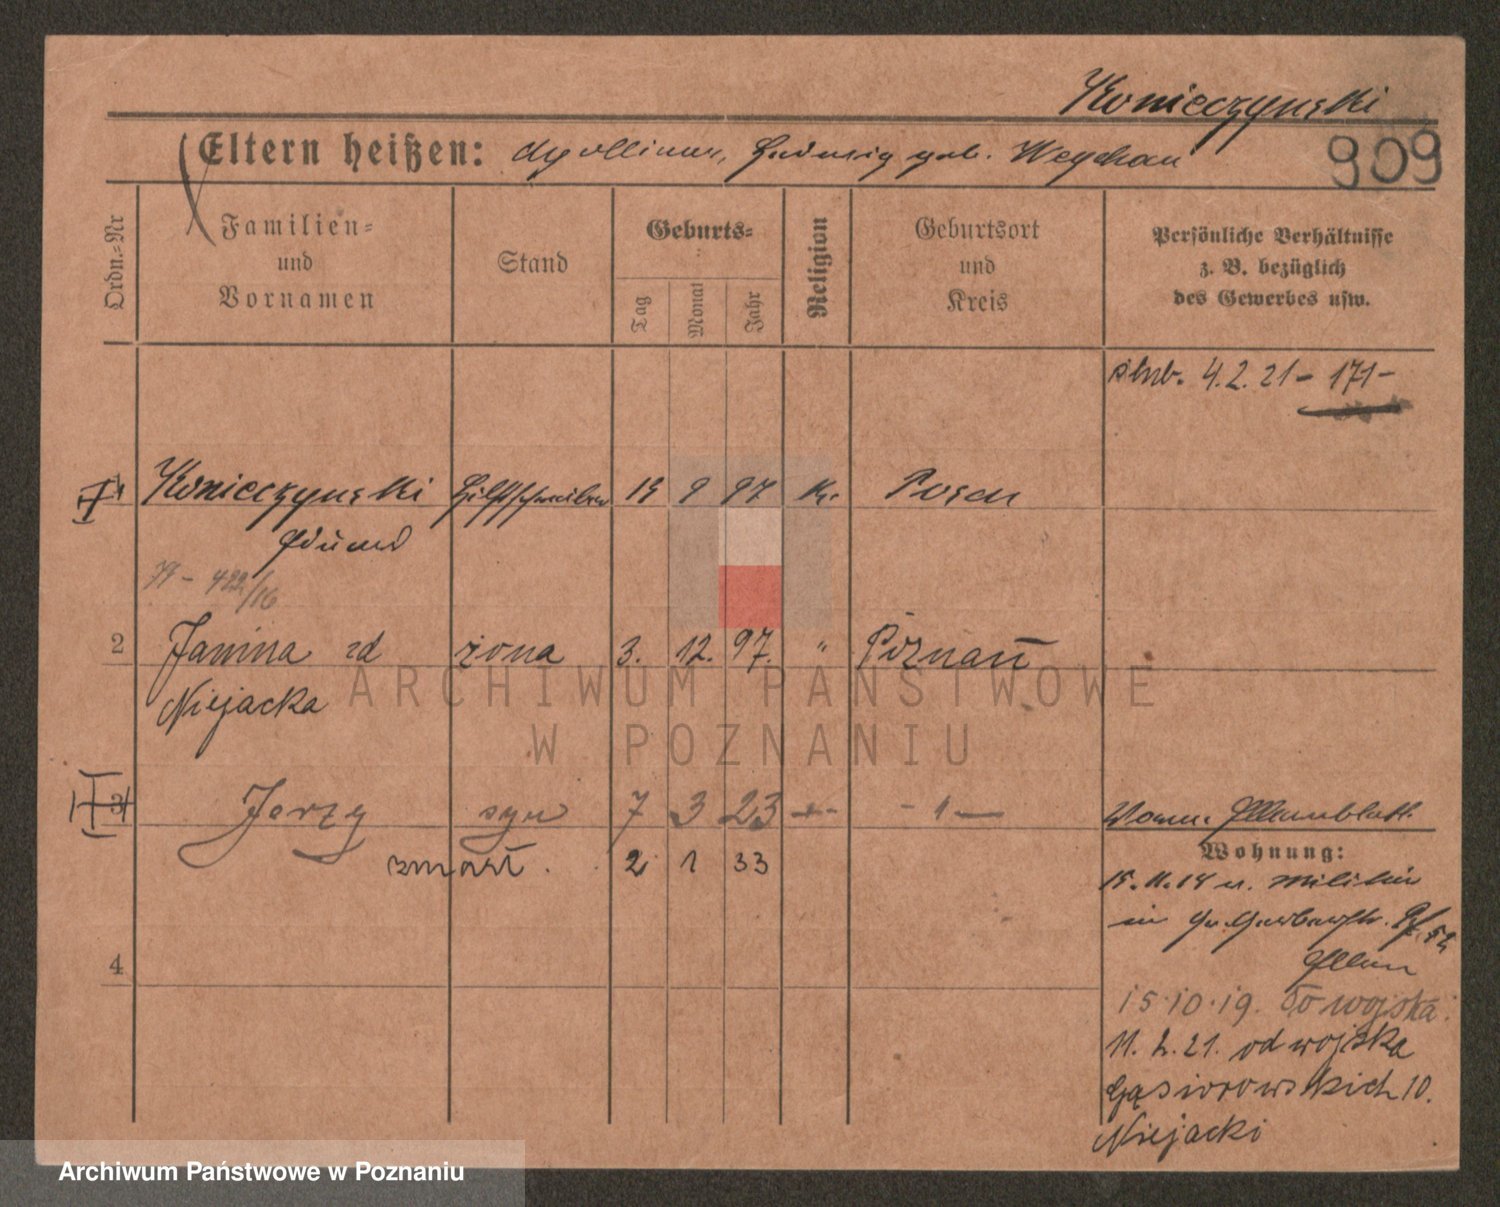 Konieczynski
Eltern heißen: Apollinar, Hedwig geb. Weychan
909
Ordn.-Nr
Familien-
und
Vornamen
Stand
Geburts-
Tag
Monat
Jahr
Religion
Geburtsort
und
Kreis
Persönliche Verhältnisse
z. B. bezüglich
des Gewerbes usw.
ślub. 4.2.21 – 171 –
1 Konieczynski Hilfsschreiber 19 9 97 K. Posen
Edmund
79 – 422/16
2 Janina zd żona 3. 12. 97. " Poznań
Niejacka
3 Jerzy syn 7 3 23 –"– –"–
zmarł. 2 1 33
Wohnung:
15.11.18 v. Militär
in Gr. Gerberstr.
Eltern
4
15.10.19. Do wojska.
11.2.21. od wojska
Gąsiorowskich 10.
Niejacki
ARCHIWUM PAŃSTWOWE
W POZNANIU
Archiwum Państwowe w Poznaniu